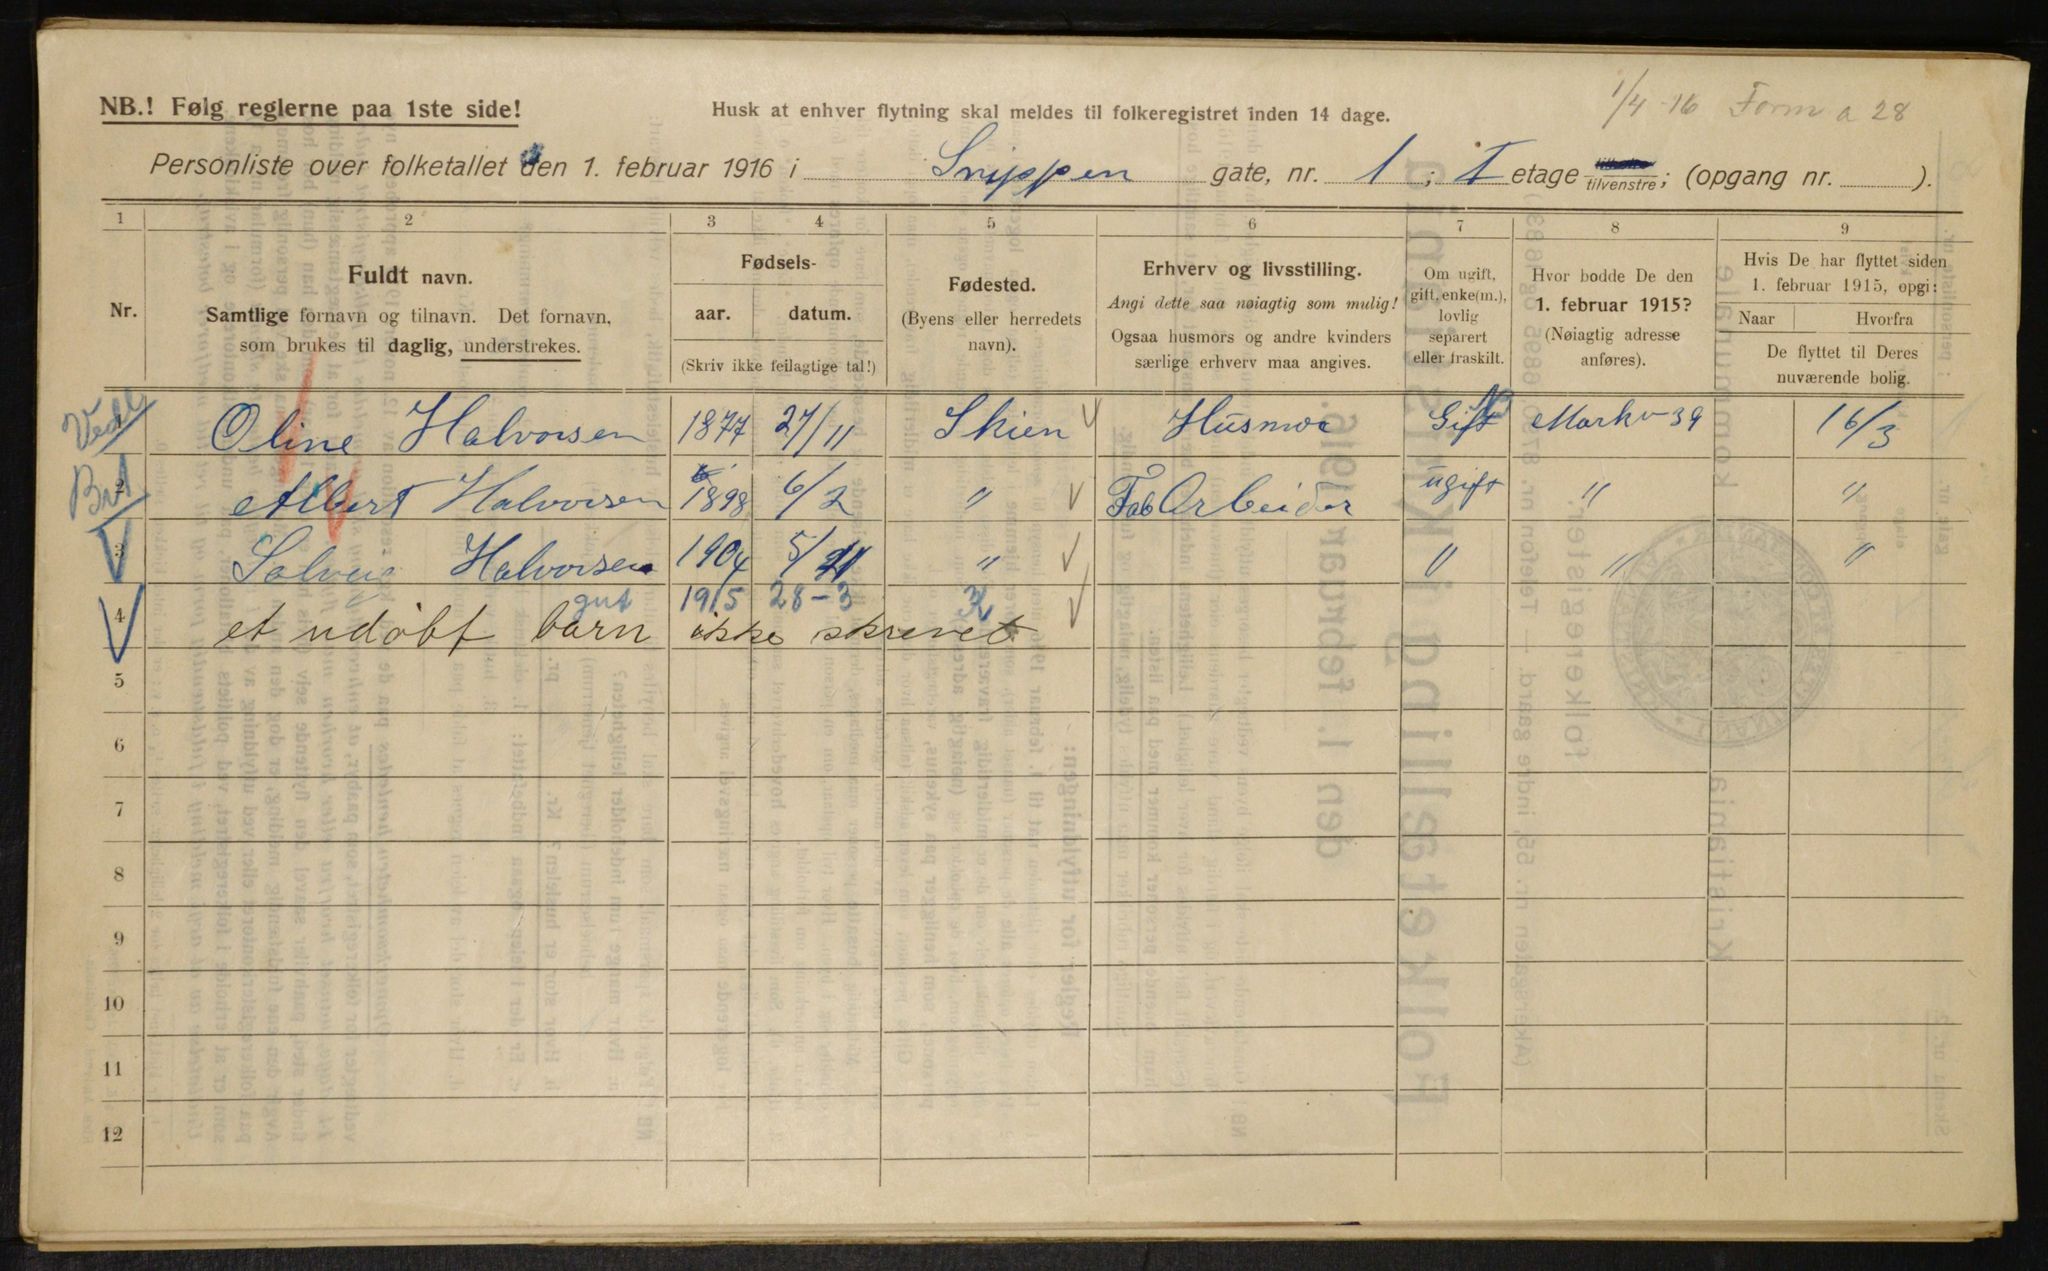 1/4 -16 Form a 28
NB.! Følg reglerne paa 1ste side!
Husk at enhver flytning skal meldes til folkeregistret inden 14 dage.
Personliste over folketallet den 1. februar 1916 i Snippen gate, nr. 1 ; I etage tilvenstre; (opgang nr. ).
1 2 3 4 5 6 7 8 9
Nr.
Fuldt navn.
Samtlige fornavn og tilnavn. Det fornavn,
som brukes til daglig, understrekes.
Fødsels-
aar. datum.
(Skriv ikke feilagtige tal!)
Fødested.
(Byens eller herredets
navn).
Erhverv og livsstilling.
Angi dette saa nøiagtig som mulig!
Ogsaa husmors og andre kvinders
særlige erhverv maa angives.
Om ugift,
gift, enke(m.),
lovlig
separert
eller fraskilt.
Hvor bodde De den
1. februar 1915?
(Nøiagtig adresse
anføres).
Hvis De har flyttet siden
1. februar 1915, opgi:
Naar Hvorfra
De flyttet til Deres
nuværende bolig.
1 Oline Halvorsen 1877 27/11 Skien Husmor Gift Markv 39 16/3
2 Albert Halvorsen 1898 6/2 " Fab Arbeider ugift " "
3 Solveig Halvorsen 1904 5/11 " " " "
gut 1915 28-3 K
4 et udøbt barn ikke skrevet
5
6
7
8
9
10
11
12